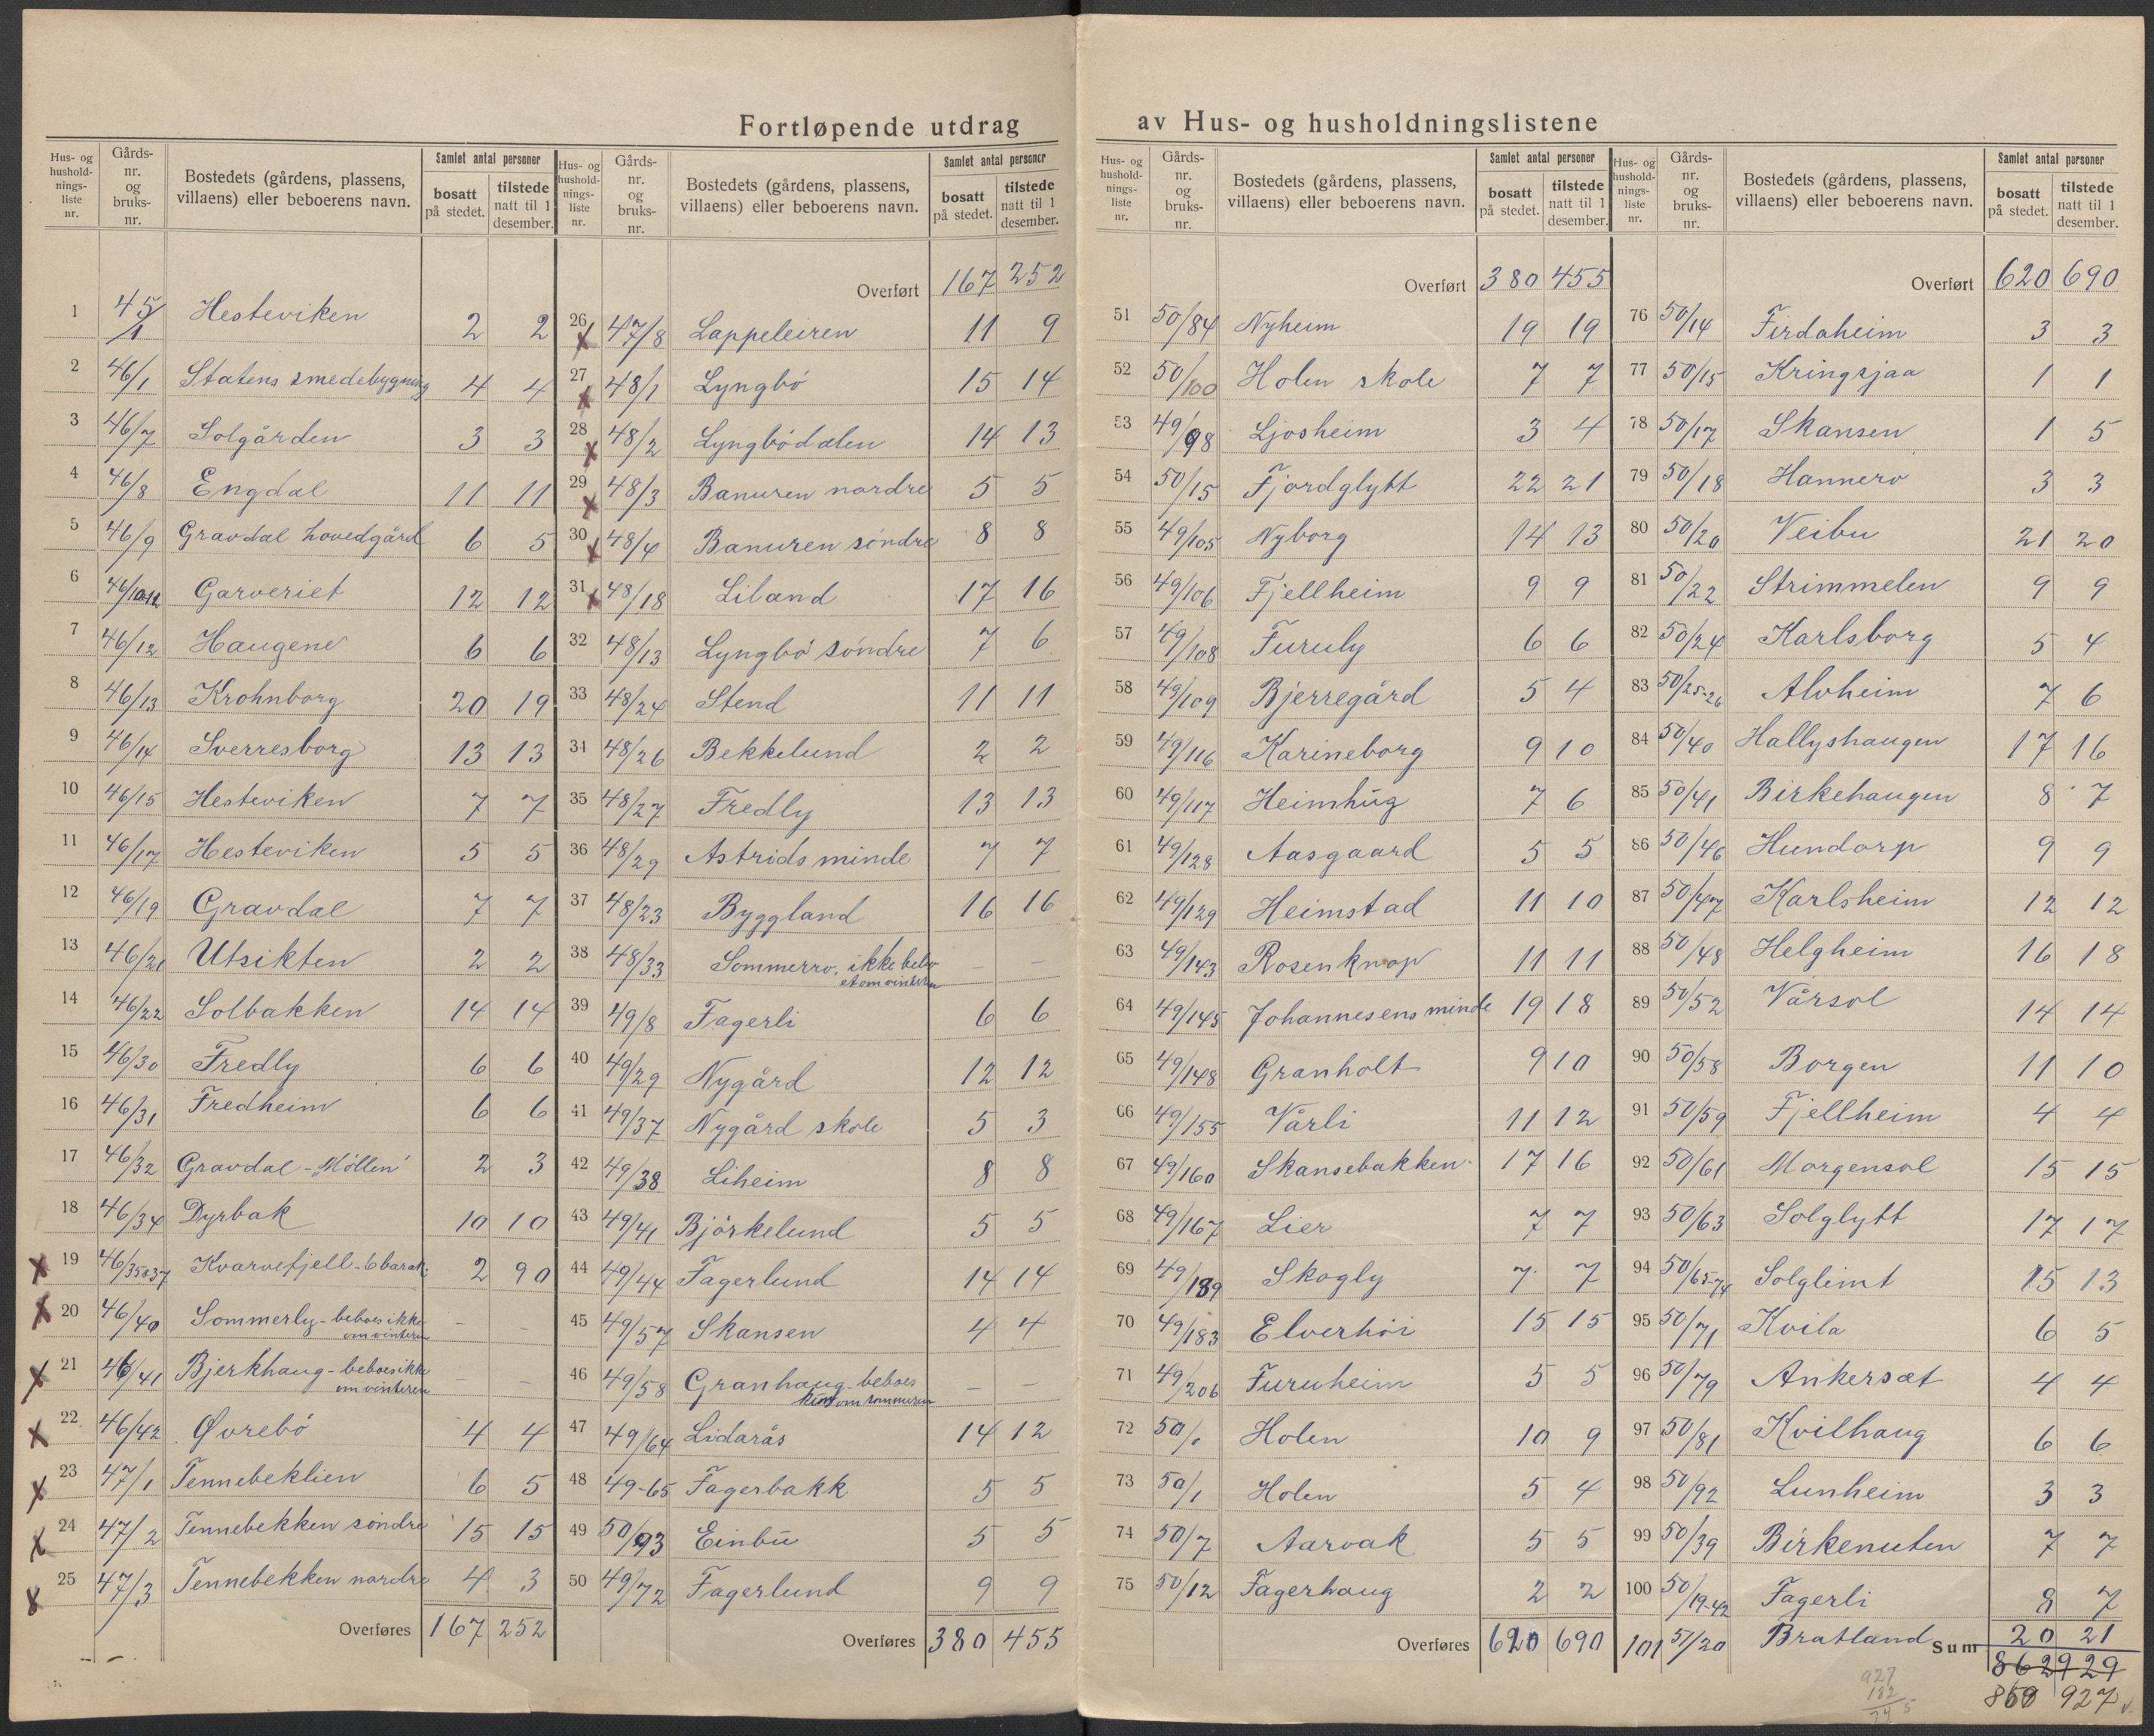 Fortløpende utdrag av Hus- og husholdningslistene
Hus- og hushold-nings-liste nr. Gårds-nr. og bruks-nr. Bostedets (gårdens, plassens, villaens) eller beboerens navn. Samlet antal personer bosatt på stedet. tilstede natt til 1 desember.
1 45/1 Hesteviken 2 2
2 46/1 Statens smedebygning 4 4
3 46/7 Solgården 3 3
4 46/8 Engdal 11 11
5 46/9 Gravdal hovedgård 6 5
6 46/10-12 Garveriet 12 12
7 46/12 Haugene 6 6
8 46/13 Krohnborg 20 19
9 46/14 Sverresborg 13 13
10 46/15 Hesteviken 7 7
11 46/17 Hesteviken 5 5
12 46/19 Gravdal 7 7
13 46/21 Utsikten 2 2
14 46/22 Solbakken 14 14
15 46/30 Fredly 6 6
16 46/31 Fredheim 6 6
17 46/32 Gravdal - "Möllen" 2 3
18 46/34 Dyrbak 10 10
x 19 46/35&37 Kvarvefjell - 6 barak. 2 90
x 20 46/40 Sommerly - beboes ikke om vinteren - -
x 21 46/41 Bjerkhaug - beboes ikke om vinteren - -
x 22 46/42 Øvrebö 4 4
x 23 47/1 Tennebeklien 6 5
x 24 47/2 Tennebekken söndre 15 15
x 25 47/3 Tennebekken nordre 4 3
Overføres 167 252
Hus- og hushold-nings-liste nr. Gårds-nr. og bruks-nr. Bostedets (gårdens, plassens, villaens) eller beboerens navn. Samlet antal personer bosatt på stedet. tilstede natt til 1 desember.
Overført 167 252
26 x 47/8 Lappeleiren 11 9
27 x 48/1 Lyngbö 15 14
28 x 48/2 Lyngbödalen 14 13
29 x 48/3 Banuren nordre 5 5
30 x 48/4 Banuren söndre 8 8
31 x 48/18 Liland 17 16
32 48/13 Lyngbö söndre 7 6
33 48/24 Stend 11 11
34 48/26 Bekkelund 2 2
35 48/27 Fredly 13 13
36 48/29 Astrids minde 7 7
37 48/23 Byggland 16 16
38 48/33 Sommerro, ikke bebo et om vinteren - -
39 49/8 Fagerli 6 6
40 49/29 Nygård 12 12
41 49/37 Nygård skole 5 3
42 49/38 Liheim 8 8
43 49/41 Björkelund 5 5
44 49/44 Fagerlund 14 14
45 49/57 Skansen 4 4
46 49/58 Granhaug - beboes kun om sommeren - -
47 49/64 Lidarås 14 12
48 49-65 Fagerbakk 5 5
49 50/93 Einbu 5 5
50 49/72 Fagerlund 9 9
Overføres 380 455
Hus- og hushold-nings-liste nr. Gårds-nr. og bruks-nr. Bostedets (gårdens, plassens, villaens) eller beboerens navn. Samlet antal personer bosatt på stedet. tilstede natt til 1 desember.
Overført 380 455
51 50/84 Nyheim 19 19
52 50/100 Holen skole 7 7
53 49/98 Ljosheim 3 4
54 50/15 Fjordglytt 22 21
55 49/105 Nyborg 14 13
56 49/106 Fjellheim 9 9
57 49/108 Furuly 6 6
58 49/109 Bjerregård 5 4
59 49/116 Karineborg 9 10
60 49/117 Heimhug 7 6
61 49/128 Aasgaard 5 5
62 49/129 Heimstad 11 10
63 49/143 Rosenknop 11 11
64 49/145 Johannesens minde 19 18
65 49/148 Granholt 9 10
66 49/155 Vårli 11 12
67 49/160 Skansebakken 17 16
68 49/167 Lier 7 7
69 49/189 Skogly 7 7
70 49/183 Elverhöi 15 15
71 49/206 Furuheim 5 5
72 50/1 Holen 10 9
73 50/1 Holen 5 4
74 50/7 Aarvak 5 5
75 50/12 Fagerhaug 2 2
Overføres 620 690
Hus- og hushold-nings-liste nr. Gårds-nr. og bruks-nr. Bostedets (gårdens, plassens, villaens) eller beboerens navn. Samlet antal personer bosatt på stedet. tilstede natt til 1 desember.
Overført 620 690
76 50/14 Firdaheim 3 3
77 50/15 Kringsjaa 1 1
78 50/17 Skansen 1 5
79 50/18 Hannero 3 3
80 50/20 Veibu 21 20
81 50/22 Strimmelen 9 9
82 50/24 Karlsborg 5 4
83 50/25-26 Alvheim 7 6
84 50/40 Hallyshaugen 17 16
85 50/41 Birkehaugen 8 7
86 50/46 Hundorp 9 9
87 50/47 Karlsheim 12 12
88 50/48 Helgheim 16 18
89 50/52 Vårsol 14 14
90 50/58 Borgen 11 10
91 50/59 Fjellheim 4 4
92 50/61 Morgensol 15 15
93 50/63 Solglytt 17 17
94 50/65-74 Solglimt 15 13
95 50/71 Kvila 6 5
96 50/79 Ankersæt 4 4
97 50/81 Kvilhaug 6 6
98 50/92 Lunheim 3 3
99 50/39 Birkenuten 7 7
100 50/19-42 Fagerli 8 7
101 51/20 Bratland Sum 20 21
862 929
927 859 927
182
745